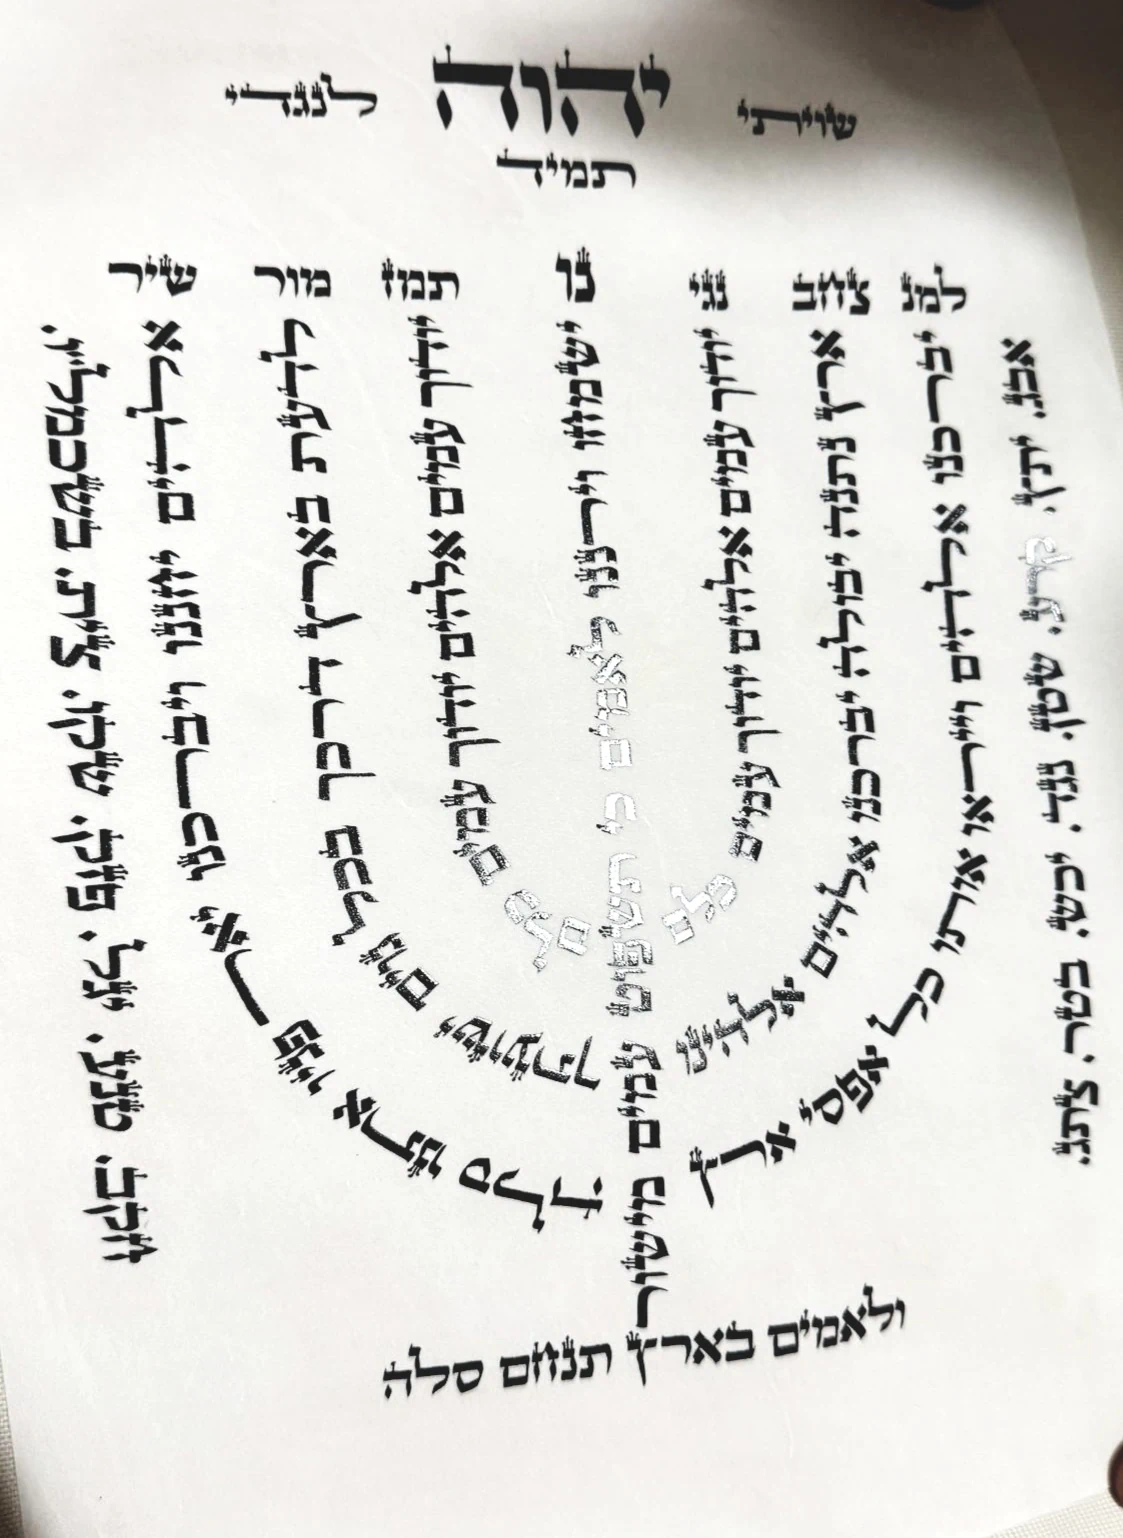 שויתי יהוה לנגדי
תמיד
למנ צחב נגי נו תמז מור שיר
אבג. יתץ. קרע. שטן. נגד. יכש. בטר. צתג.
יברכנו אלהים וייראו אותו כל אפסי ארץ
ארץ נתנה יבולה יברכנו אלהים אלהינו
יודוך עמים אלהים יודוך עמים כלם
ישמחו וירננו לאמים כי תשפוט עמים מישור
יודוך עמים אלהים יודוך עמים כלם
לדעת בארץ דרכך בכל גוים ישועתך
אלהים יחננו ויברכנו יאר פניו אתנו סלה
חקב. טנע. יגל. פזק. שקו. צית. בשכמליו.
ולאמים בארץ תנחם סלה